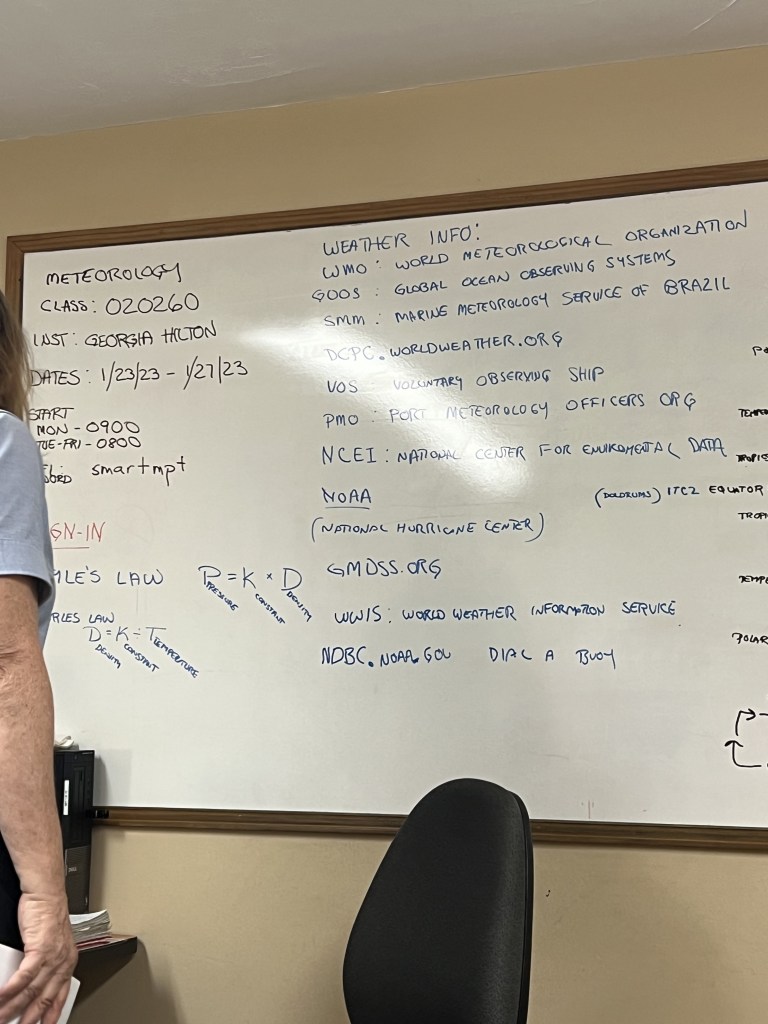 METEOROLOGY
CLASS: 020260
INST: GEORGIA HILTON
DATES: 1/23/23 - 1/27/23
START
MON - 0900
TUE-FRI - 0800
smartmpt
GN-IN
YLE'S LAW P = K × D
PRESSURE CONSTANT DENSITY
RLES LAW
D = K ÷ T
DENSITY CONSTANT TEMPERATURE
WEATHER INFO:
WMO: WORLD METEOROLOGICAL ORGANIZATION
GOOS: GLOBAL OCEAN OBSERVING SYSTEMS
SMM: MARINE METEOROLOGY SERVICE OF BRAZIL
DCPC.WORLDWEATHER.ORG
VOS: VOLUNTARY OBSERVING SHIP
PMO: PORT METEOROLOGY OFFICERS ORG
NCEI: NATIONAL CENTER FOR ENVIROMENTAL DATA
NOAA
(NATIONAL HURRICANE CENTER)
GMDSS.ORG
WWIS: WORLD WEATHER INFORMATION SERVICE
NDBC.NOAA.GOV DIAL A BUOY
PO
TEMPER
TROPIC
(DOLDRUMS) ITCZ EQUATOR
TROPI
TEMPE
POLAR